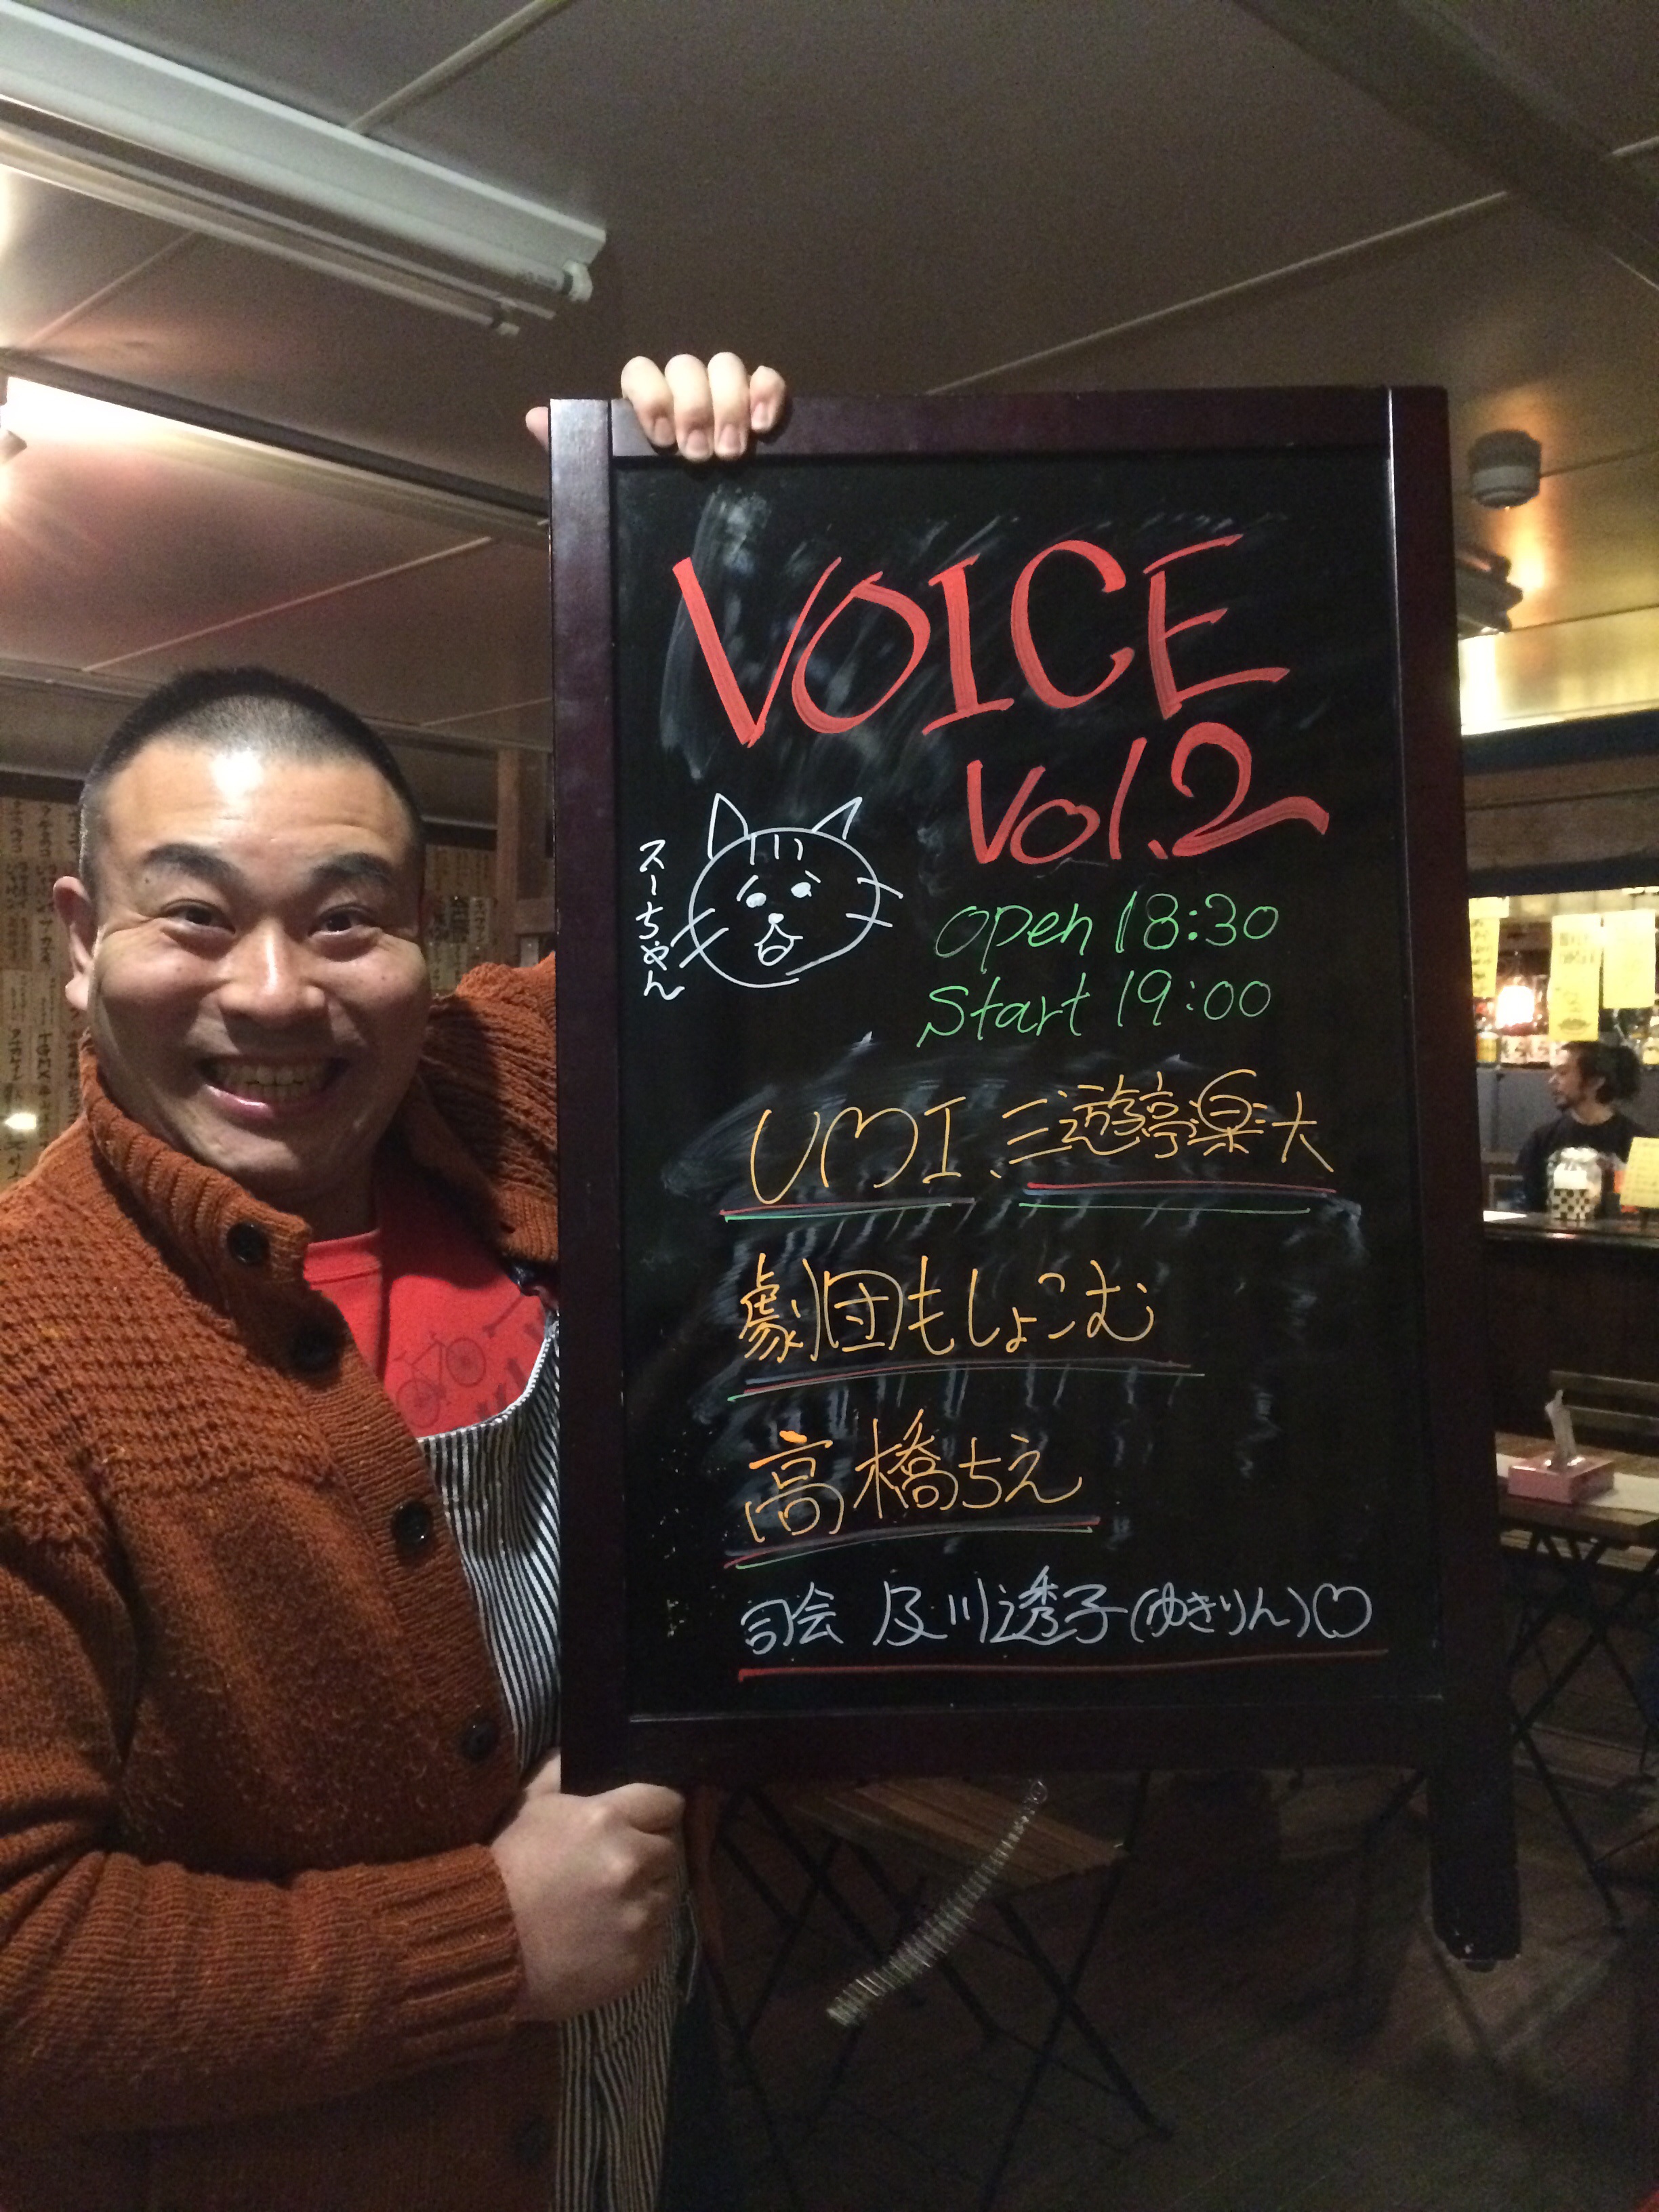 VOICE
Vol.2
スーちゃん
open 18:30
Start 19:00
UMI、三遊亭楽大
劇団もしょこむ
高橋ちえ
司会 及川透子(ゆきりん)♡